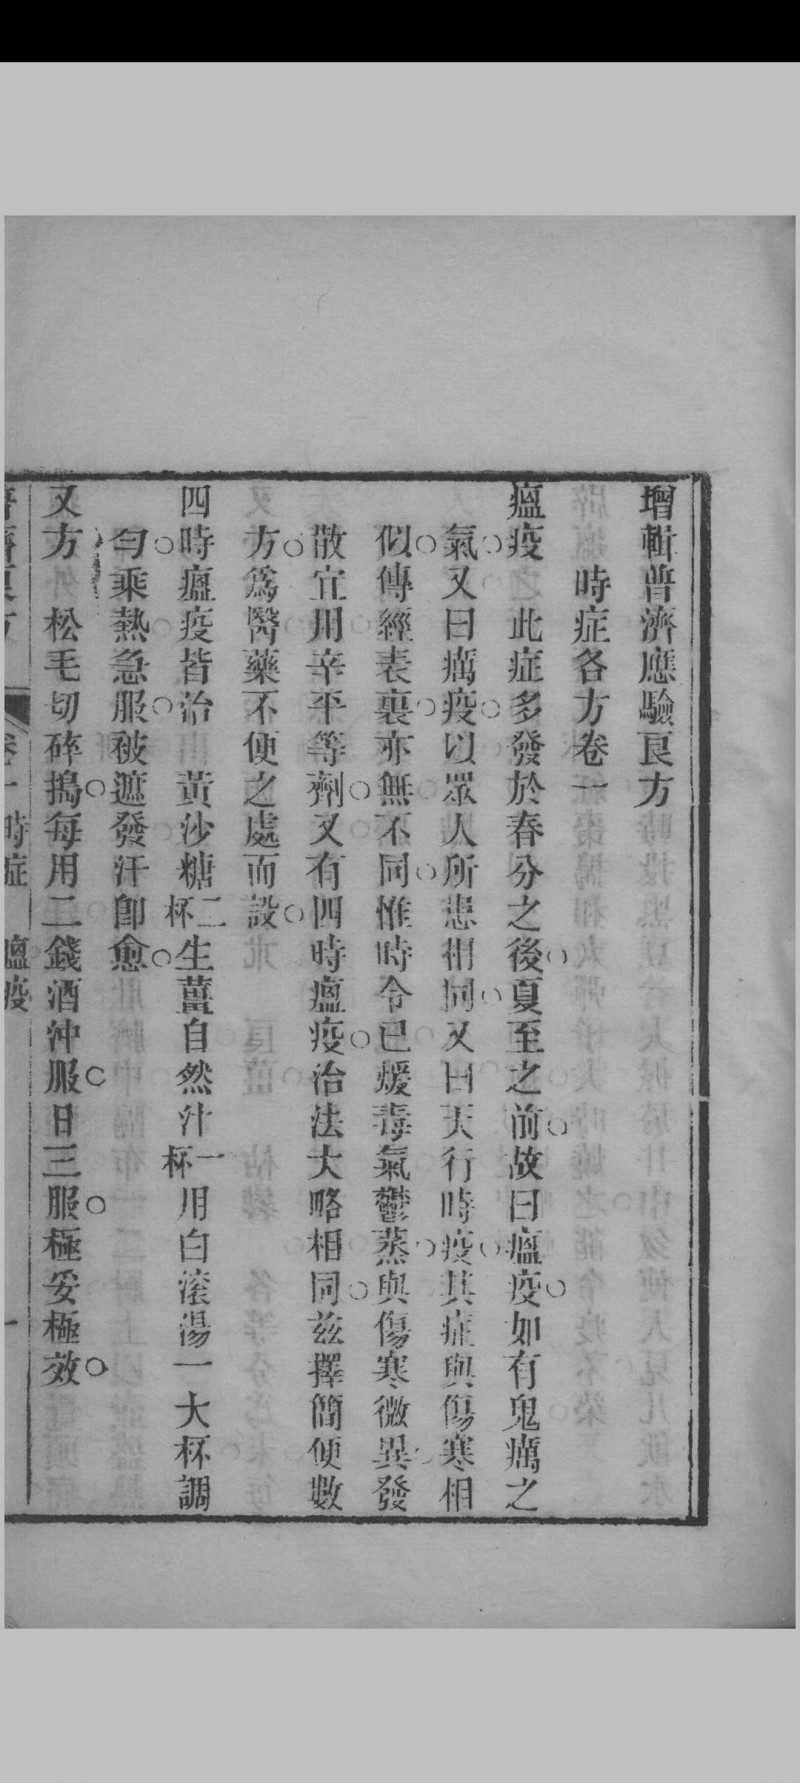 增輯普濟應驗良方
時症各方卷一
瘟疫 此症多發於春分之後夏至之前故曰瘟疫如有鬼癘之
氣又曰癘疫以眾人所患相同又曰天行時疫其症與傷寒相
似傳經表裏亦無不同惟時令已煖毒氣鬱蒸與傷寒微異發
散宜用辛平等劑又有四時瘟疫治法大略相同茲擇簡便數
方爲醫藥不便之處而設
四時瘟疫皆治 黃沙糖二杯生薑自然汁一杯用白滾湯一大杯調
勻乘熱急服被遮發汗卽愈
又方 松毛切碎搗每用二錢酒沖服日三服極妥極效
卷一時症 瘟疫 一